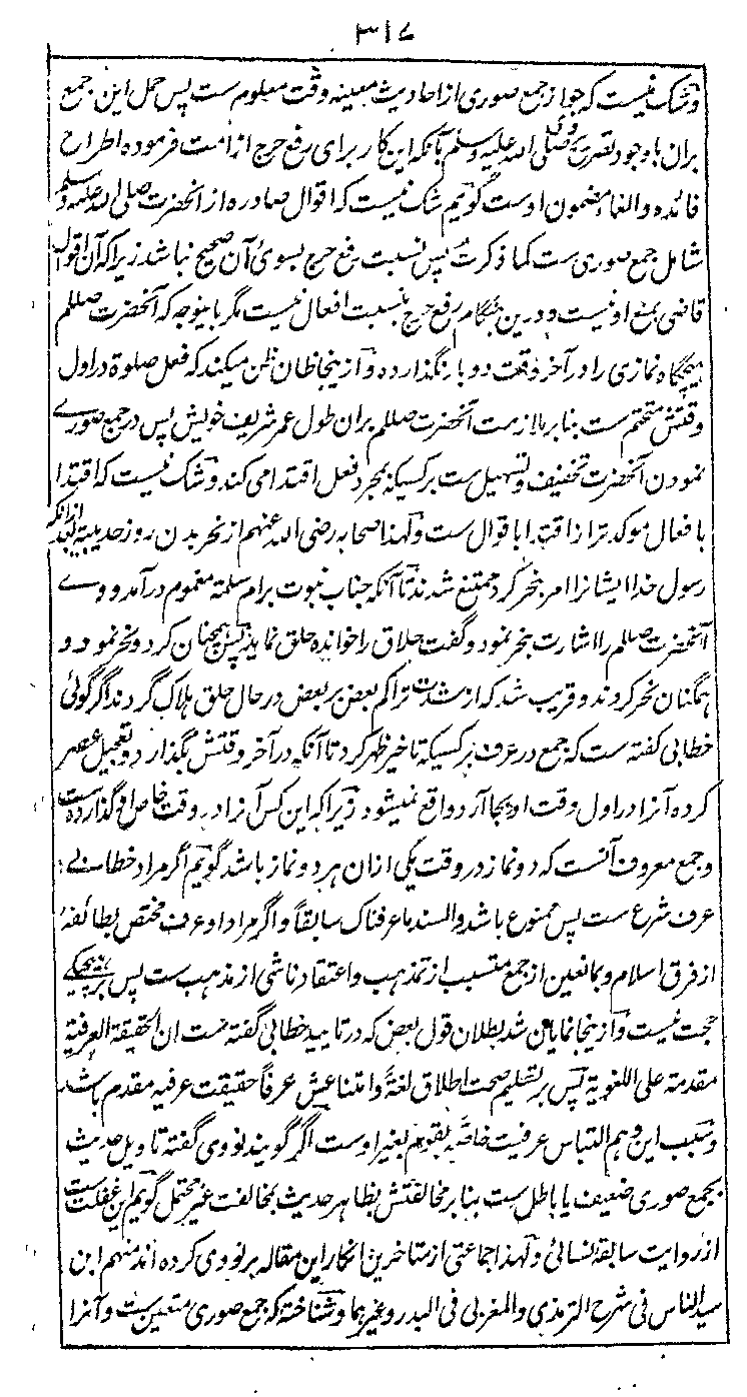 ۳۱۷
و شک نیست که جواز جمع صوری از احادیث مبینه وقت معلوم ست پس حمل این جمع
بران با وجود تصریح وی صلی الله علیه وسلم بآنکه این کار برای رفع حرج از امت فرموده اطراح
فائده و الغاء مضمون اوست گوئیم شک نیست که اقوال صادره از آنحضرت صلی الله علیه وسلم
شامل جمع صوری ست کما ذکرت پس نسبت رفع حرج بسوئ آن صحیح نباشد زیرا که آن اقوال
قاضی بمنع او نیست و درین هنگام رفع حرج بنسبت افعال نیست مگر باینوجه که آنحضرت صللم
هیچگاه نمازی را در آخر وقت دو بار نگذارده و از ینجا ظان ظن میکند که فعل صلوة در اول
وقتش متحتم ست بنابر ملازمت آنحضرت صللم بران طول عمر شریف خویش پس در جمع صورے
نمودن آنحضرت تخفیف و تسهیل ست بر کسیکه بمجرد فعل اقتدا می کند و شک نیست که اقتدا
با فعال موکد تر از اقتدا با قوال ست ولهذا صحابه رضی الله عنهم از نحر بدن روز حدیبیه بعد ازانکه
رسول خدا ایشانرا امر بنحر کرد ممتنع شدند تا آنکه جناب نبوت بر ام سلمة مغموم درآمد و وے
آنحضرت صللم را اشارت بنحر نمود و گفت حلاق را خوانده حلق نماید پس همچنان کرد و نحر نمود و
همگنان نحر کردند و قریب شد که از شدت تراکم بعض بر بعض در حال حلق هلاک گردند اگر گوئی
خطابی گفته ست که جمع در عرف بر کسیکه تاخیر ظهر کرد تا آنکه در آخر وقتش بگذارد و تعجیل عصر
کرده آنرا در اول وقت او بجا آرد واقع نمیشود زیرا که این کس آنرا در وقت خاص او گذارده ست
و جمع معروف آنست که دو نماز در وقت یکی ازان هر دو نماز باشد گوئیم اگر مراد خطابے
عرف شرع ست پس ممنوع باشد والسند ما عرفناک سابقاً و اگر مراد او عرف مختص بطائفهٔ
از فرق اسلام و مانعین از جمع متسبب از تمذهب و اعتقاد ناشی از مذهب ست پس بر هیچیکے
حجت نیست و از ینجا نمایان شد بطلان قول بعض که در تایید خطابی گفته ست ان الحقیقة العرفیة
مقدمة علی اللغویة پس بر تسلیم صحت اطلاق لغةً و امتناعش عرفاً حقیقت عرفیه مقدم باشد
و سبب این وهم التباس عرفیت خاصه بقوم بغیر اوست اگر گویند نووی گفته تاویل حدیث
بجمع صوری ضعیف یا باطل ست بنابر مخالفتش بظاهر حدیث بمخالفت غیر محتمل گوئیم این غفلت ست
از روایت سابقهٔ نسائی ولهذا جماعتی از متاخرین انکار این مقاله بر نووی کرده اند منهم ابن
سید الناس فی شرح الترمذی والمغربی فی البدر و غیرهما و شناخته که جمع صوری متعین ست و آنرا